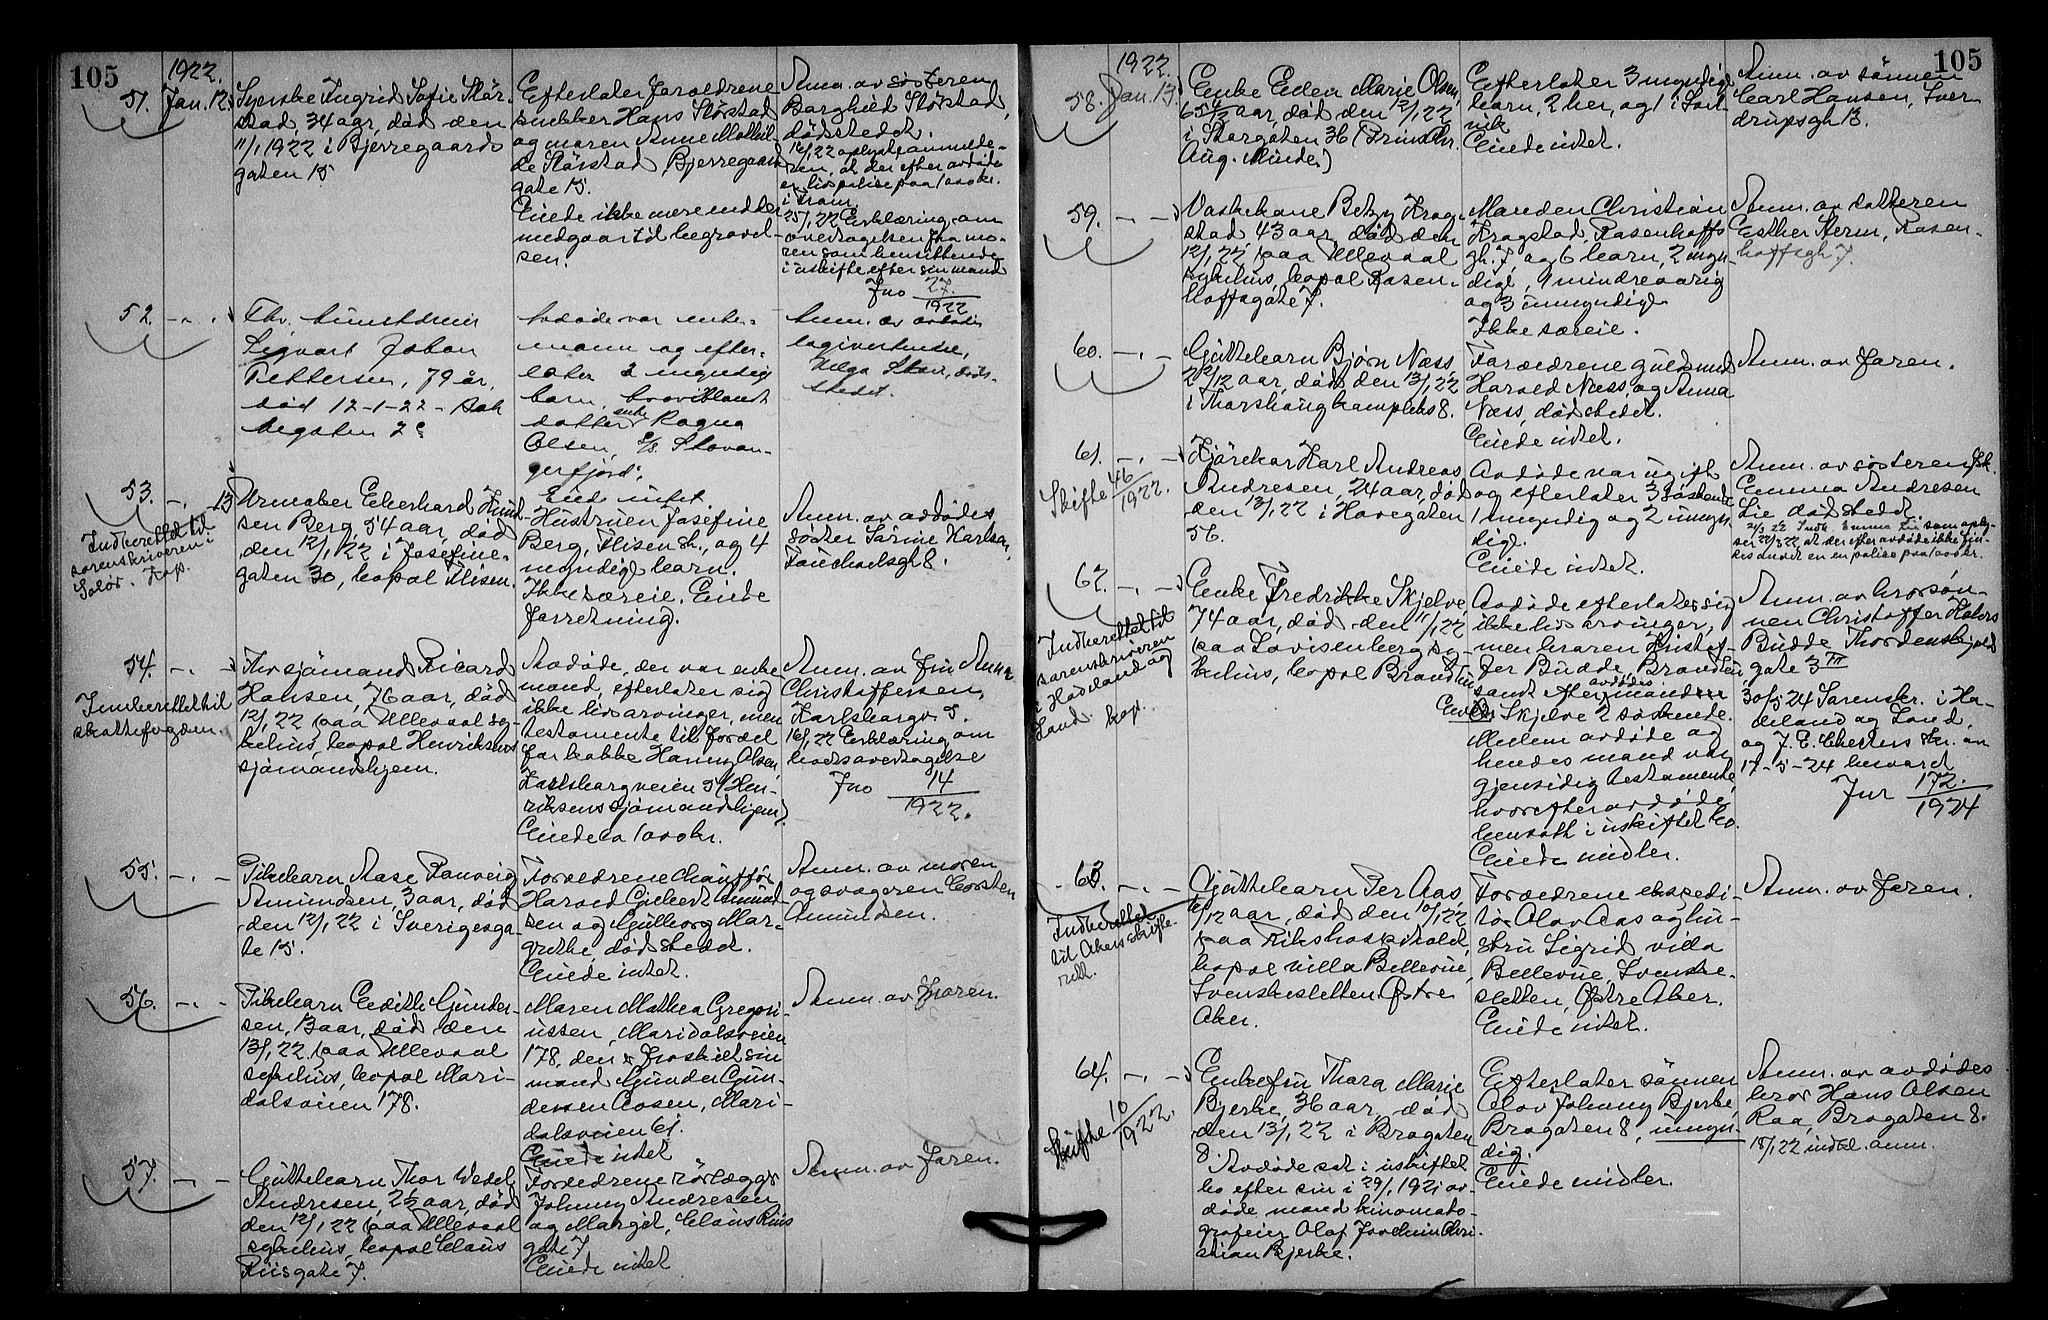 105
1922.
51. Jan. 12.
Syerske Ingrid Sofie Stør-
stad, 34 aar, død den
11/1 1922 i Bjerregaards
gaten 15
Efterlater foreldrene
snekker Hans Størstad
og moren Anne Mathil-
de Størstad, Bjerregaards
gate 15.
Eiede ikke mere end der
medgaar til begravel-
sen.
Anm. av søsteren
Borghild Størstad,
dødstedet.
16/1 22 oplyste anmelde-
ren, at der efter avdøde
er livspolise paa 1000 kr.
i Fram.
25/1 22 Erklæring om
overtagelsen fra mo-
ren som hensittende
i uskifte efter sin mand
Jno 27.
1922
52. -.-
Fhv.
Sigvart Johan
Pettersen, 79 år,
død 12-1-22 - Bak
kegaten 2
Avdøde var enke-
mann og efter-
later 2 myndige
barn, hvoriblandt
datter enke Ragna
Olsen, S/S. Stavan-
gerfjord.
Eide intet.
Anm. av avdødes
logivertinde,
Helga Skar, død-
stedet.
53. -.- 13
Indberettet til
sorenskriveren i
Solør. Kop.
Urmaker Eberhard Knud-
sen Berg, 54 aar, død
den 12/1 22 i Josefine-
gaten 30, bopæl Flisen.
Hustruen Josefine
Berg, Flisen st., og 4
myndige barn.
Ikke særeie. Eiede
forretning.
Anm. av avdødes
søster Sarine Karlsen,
Fauchaldsgt 8.
54. -.-
Indberettet til
skattefogden.
Fhv sjømand Ricard
Hansen, 76 aar, død
12/1 22 paa Ullevaal sy-
kehus, bopæl Henriksens
sjømandshjem.
Avdøde, der var enke
mand, efterlater sig
ikke livsarvinger, men
testamente til fordel
for kokke Hanny Olsen,
Karlsborgveien 5 (Hen-
riksens sjømandshjem).
Eiede ca 1000 kr.
Anm. av fru Anna
Christoffersen,
Karlsborgv. 5.
16/1 22 Erklæring om
boets overtagelse
Jno 14
1922.
55. -.-
Pikebarn Aase Ranveig
Amundsen, 3 aar, død
den 12/1 22 i Sverigesga-
te 15.
Foreldrene chauffør
Harald Gilbert Amund-
sen og Gullborg Mar-
grethe, dødstedet.
Eiede intet.
Anm. av moren
og svogeren Torsten
Amundsen.
56. -.-
Pikebarn Edith Gunder-
sen, 13 aar, død den
13/1 22 paa Ullevaal
sykehus, bopæl Mari-
dalsveien 178.
Moren Mathea Gregori-
ussen, Maridalsveien
178, den fraskilt sin
mand Gunder Gun-
dersen Aasen, Mari-
dalsveien 61.
Eiede intet
Anm. av Faren.
57. -.-
Guttebarn Thor Wedel
Andresen, 2 1/2 aar, død
den 12/1 22 paa Ullevaal
sykehus, bopæl Claus
Riisgate 7.
Foreldrene rørlægger
Johnny Andresen
og Margit, Claus Riis
gate 7
Eiede intet
Anm. av Faren.
105
1922.
58. Jan. 13.
Enke Ellen Marie Olsen,
65 aar, død den 12/1 22
i Storgaten 36 (Prinds Chr.
Aug. Minde)
Efterlater 3 myndige
barn, 2 her, og 1 i Lar-
vik
Eiede intet.
Anm. av sønnen
Carl Hansen, Sver
drupsgt 13.
59. -.-
Vaskekone Betzy Krog-
stad 43 aar, død den
12/1 22 paa Ullevaal
sykehus, bopæl Rosen-
hoffsgate 7.
Manden Christian
Krogstad, Rosenhoffs
gt. 7, og 6 barn, 2 myn
dige, 1 mindreaarig
og 3 umyndige
Ikke særeie.
Anm. av datteren
Esther Herm, Rosen-
hoffsgt. 7.
60. -.-
Guttebarn Bjørn Næss
2 2/12 aar, død den 13/1 22
i Torshaugkompleks 8.
Foreldrene guldsmed
Harald Næss, og Anna
Næss, dødstedet.
Eiede intet.
Anm. av Faren.
61. -.-
Skifte 46
1922.
Kjørekar Karl Andreas
Andresen, 24 aar, død
den 13/1 22 i Havegaten
56.
Avdøde var ugift
og efterlater 3 søskende
1 myndig og 2 umyn-
dige.
Eiede intet.
Anm. av søsteren
Emma Andresen
Lie dødstedet.
24/3 22 Indk. Emma Lie som oply-
ser 22/3 22 at der efter avdøde ikke fin-
des andet en en polise paa 1000 kr.
62. -.-
Indberettet til
sorenskriveren
i Hadeland og
Land. kop.
Enke Fredrikke Skjelve,
74 aar, død den 11/1 22
paa Lovisenberg sy-
kehus, bopæl Brandbu
Avdøde efterlater sig
ikke livsarvinger,
men broren Kristof-
fer Budde, Brandbu,
samt efter avdødes mand
Skjelve 2 søskende.
Mellem avdøde og
hendes mand var
gjensidig testamente
hvorefter avdøde
hensatt i uskiftet bo.
Eiede midler.
Anm. av brorsøn-
nen Christoffer Halvors
Budde Thordenskjolds
gate 3 III
30/5 24 Sorenskr. i Ha-
deland og Land.
og J. E.
17-5-24 besvaret
Jnr 172.
1924
63. -.-
Indberettet
til Akers skifte-
rett.
Guttebarn Per Aas,
aar, død den 12/1 22
paa Rikshospitalet,
bopæl villa Bellevue,
Svenskesletten Østre
Aker.
Foreldrene ekspedi-
tør Olav Aas og hu-
stru Sigrid villa
Bellevue, Svenske-
sletten, Østre Aker.
Eiede intet.
Anm. av Faren.
64. -.-
Skifte 10
1922.
Enkefru Thora Marie
Bjerke, 36 aar, død
den 13/1 22 i Brogaten
8.
Avdøde sat i uskiftet
bo efter sin i 29/1 1921 av-
døde mand kinomato-
grafeier Olaf Joachim Chri-
stian Bjerke.
Efterlater sønnen
Olav Johnny Bjerke,
Brogaten 8, umyn-
dig.
Eiede midler.
Anm. av avdødes
bror Hans Olsen
Raa, Brogaten 8.
18/1 22 indk. anm.